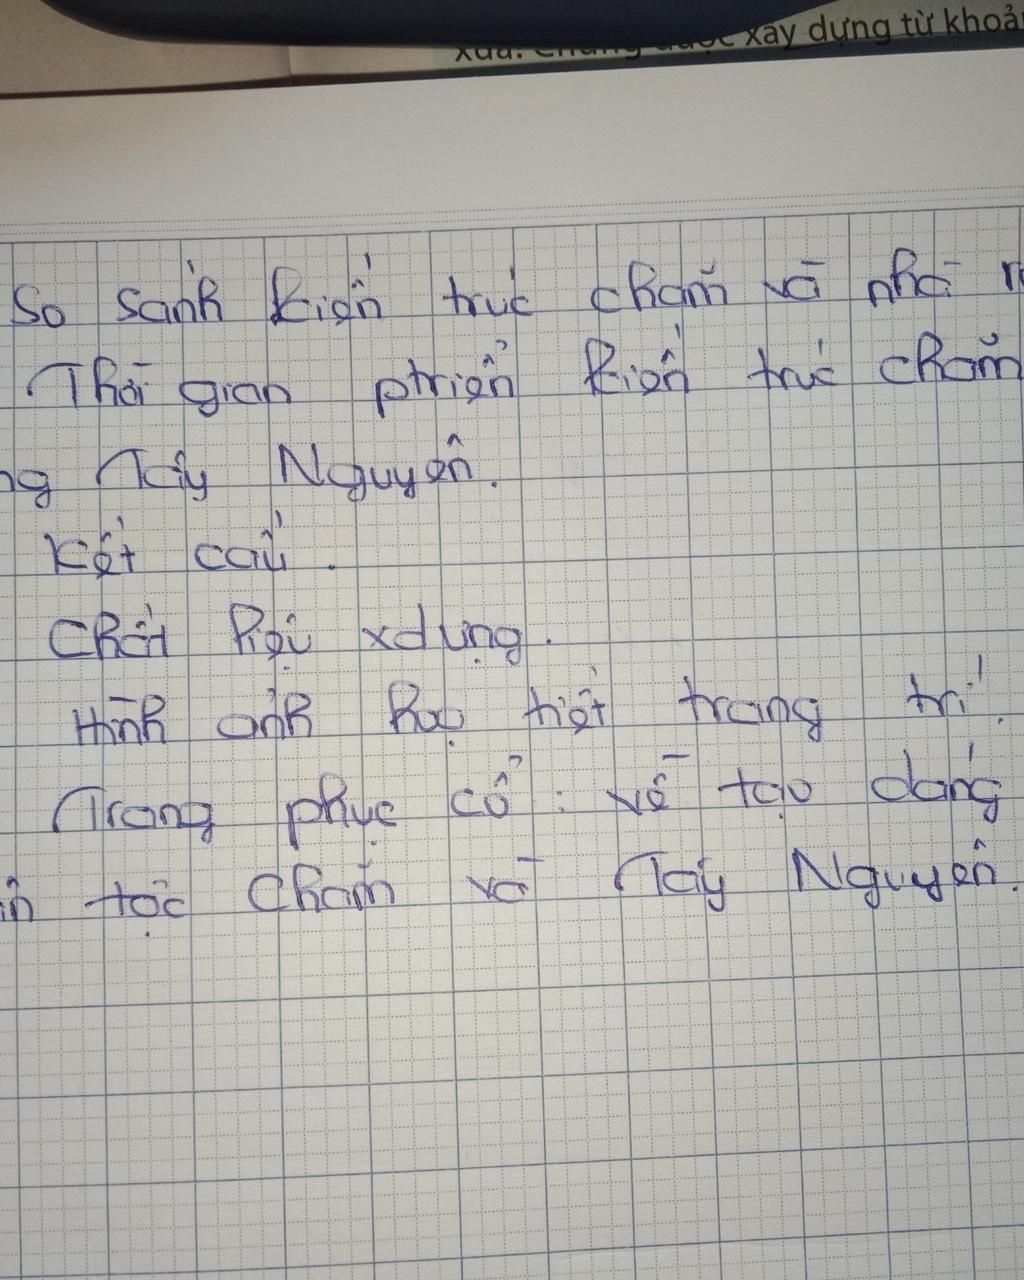 xưa. Chúng được xây dựng từ khoản
So sánh kiến trúc chăm và nhà r
Thời gian ptriển kiến trúc chăm
ng Tây Nguyên.
Kết cấu.
Chất liệu xdựng.
Hình ảnh hoạ tiết trang trí.
Trang phục cổ: về tạo dáng
ân tộc Chăm và Tây Nguyên.